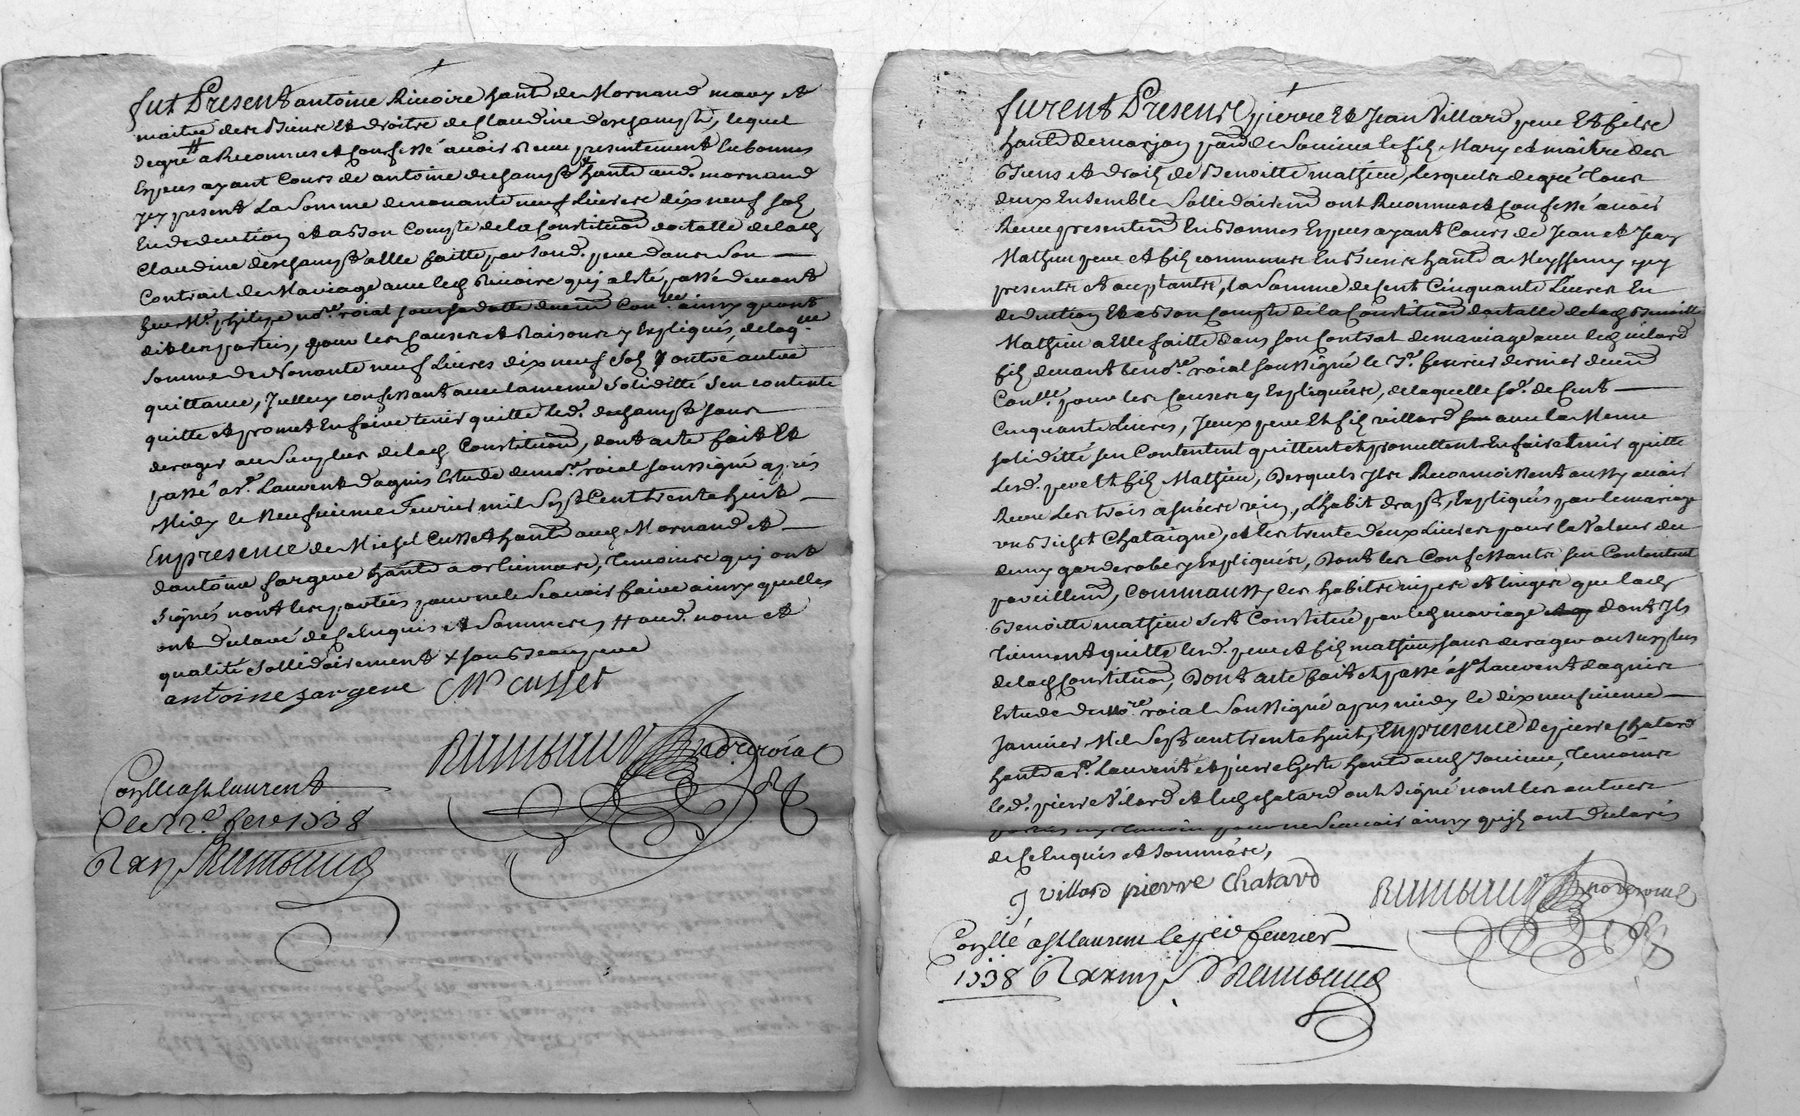 fut Present antoine Riuoire hant de Mornand mary et
maitre des Biens et droits de Claudine deschamps, lequel
de gré a Reconnu et confessé auoir Reçeu presentement En bonnes
Especes ayant Cours de antoine deschamps hant aud. mornand
icy present La Somme de nonante neuf Liures dix neuf sols
En deduction et a bon Compte de la Constituon dotalle de lad
Claudine deschamps a Elle faitte par son d. pere dans Son
Contrait de Mariage auec led Riuoire quj a esté passé deuant
not.re roial sous sa datte deuem Con.llé ainsy quont
dit les parties, pour les causes et Raisons y Expliqués, de laq.lle
Somme de Nonante neuf Liures dix neuf sols
quittance, confessant auec la meme soliditté s'en contente
quitte et promet En faire tenir quitte led. deschamps sans
deroger au Surplus de lad Constituon, dont acte fait Et
passé a S.t Laurent dagnis Estude du no.re roial soussigné apres
Midy le Neufuieme Feurier mil Sept Cent trente huit
En presence de Michel Cusset hant aud Mornand et
dantoine fargere hant a orliennas, temoins quj ont
signés nont les parties pour ne le Scauoir faire ainsy quelles
ont declaré de Ce Enquis et Sommées # aud. nom et
qualité sollidairement x son beaupere
antoine fargere M cusset
no.re roial
Conllé a St laurent
Le 22.e feve 1738
furent Presents pierre Et Jean Villard pere Et fils
hants de marjon par.sse de Soucieu le fils Mary et maitre des
Biens et droits de Benoitte mathieu, Lesquels de gré tous
deux Ensemble Sollidairemt ont Reconnu et confessé auoir
Receu presentemt En bonnes Especes ayant Cours de Jean et Jean
Mathieu pere et fils communs En biens hants a Meyssemy icy
presents et acceptants, la Somme de Cent Cinquante Liures En
deduction Et a bon compte de la Constituon dotalle de lad Benoitte
Mathieu a Elle faitte dans son Contrat de mariage auec led uilard
fils deuant le no.re roial soussigné le feurier dernier deuem
Con.llé pour les causes y Expliquées, de laquelle so.e de Cent
Cinquante Liures, Jceux pere Et fils villard auec la Meme
soliditté sen Contentent quittent et promettent En faire tenir quitte
Lesd. pere Et fils Mathieu, Desquels Ils Reconnoissent aussy auoir
Receu Les trois asnées Lhabit drap, Expliqués par le mariage
un Bichet Chataigne, et les trente deux Liures pour la Valeur du
demy garderobe y Expliquée, Dont les Confessants sen Contentent
pareillemt, Comm aussy des habits et linges que lad
Benoitte mathieu sest Constitué par led mariage dont Ils
tiennent quitte lesd. pere et fils mathieu sans deroger au surplus
de lad Constituon, Dont acte fait et passé a St Laurent dagnis
Estude du no.re roial Soussigné apres midy le dix neufuieme
Januier Mil Sept cent trente huit, En presence de pierre Chatard
hant a S.t Laurent et pierre hant aud Soucieu, temoins
led. pierre Vilard et led chatard ont signé nont les autres
parties ny temoin pour ne Scauoir ainsy quils ont declarés
de Ce Enquis et sommés,
J villard pierre Chatard
no.re roial
Conllé a St laurent le feurier
1738